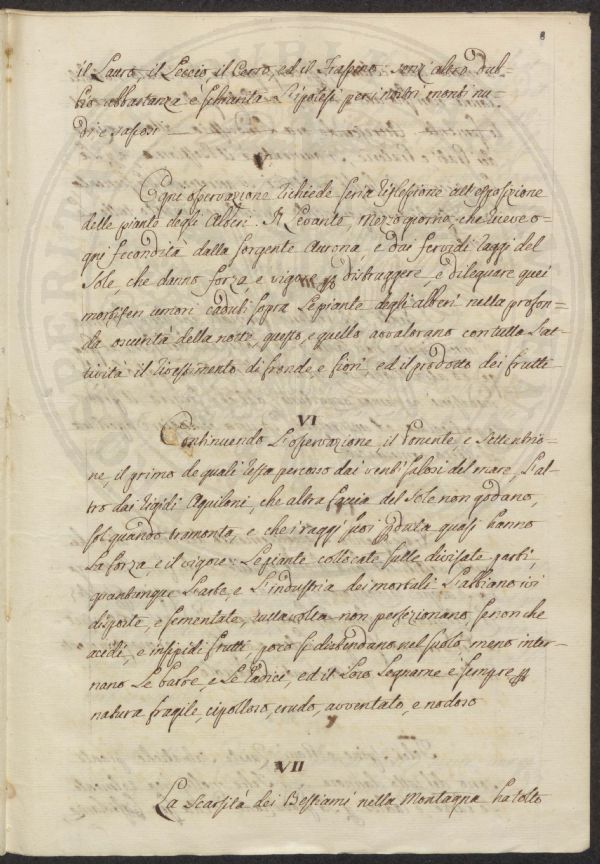 8
il Lauro, il Leccio, il Cerro, ed il Frassino: senz'altro dub=
bio abbastanza è schiarita L'ipotesi per i nostri monti nu=
di, e sassosi
Ogni osservazione richiede seria riflessione all'esposizione
delle piante degli Alberi. Il Levante Mezzogiorno che riceve o=
gni fecondità dalla sorgente Aurora e dai fervidi raggi del
Sole, che danno forza, e vigore per distruggere, e dileguare quei
morbiferi umori caduti sopra Le piante degli alberi nella profon=
da oscurità della notte, questo, e quello avvalorano con tutta L'at=
tività il rivestimento di fronde, e fiori, ed il prodotto dei frutti
VI
Continuendo L'osservazione, il Ponente e Settentrio=
ne, il primo de quali resta percosso dai venti salosi del mare, L'al=
tro dai rigidi Aquiloni, che altra faccia del Sole non godano,
sol quando tramonta, e che i raggi suoi perduta quasi hanno
La forza, e il vigore: Le piante collocate sulle divisate parti,
quantunque L'arte, e L'industria dei mortali L'abbiano ivi
disposte, e sementate, tuttavolta non perfezionano se non che
acidi, e insipidi frutti, poco si distendano nel suolo, meno inter=
nano Le barbe, e Le radici, ed il Loro Legname è sempre per
natura fragile, cipolloso, crudo, avventato, e nodoso
VII
La Scarsità dei Bestiami nella Montagna ha tolto